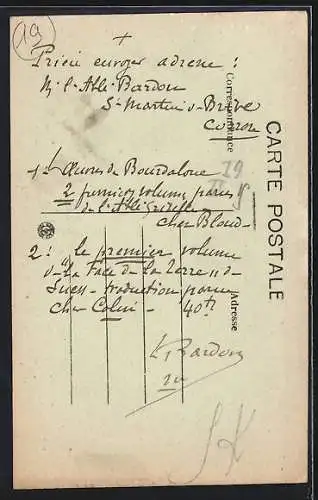 19
+
Prière envoyer adresse :
M. l'Abbé Bardon
St Martin s. Brive
Corrèze
1: L'Œuvres de Bourdaloue
2 premiers volumes parus
de l'Abbé Griselle
chez Bloud -
2: le premier volume
"La Face de la Terre" de
Suess - traduction parue
chez Colin - 40 fr
L. Bardon
CARTE POSTALE
Correspondance
Adresse